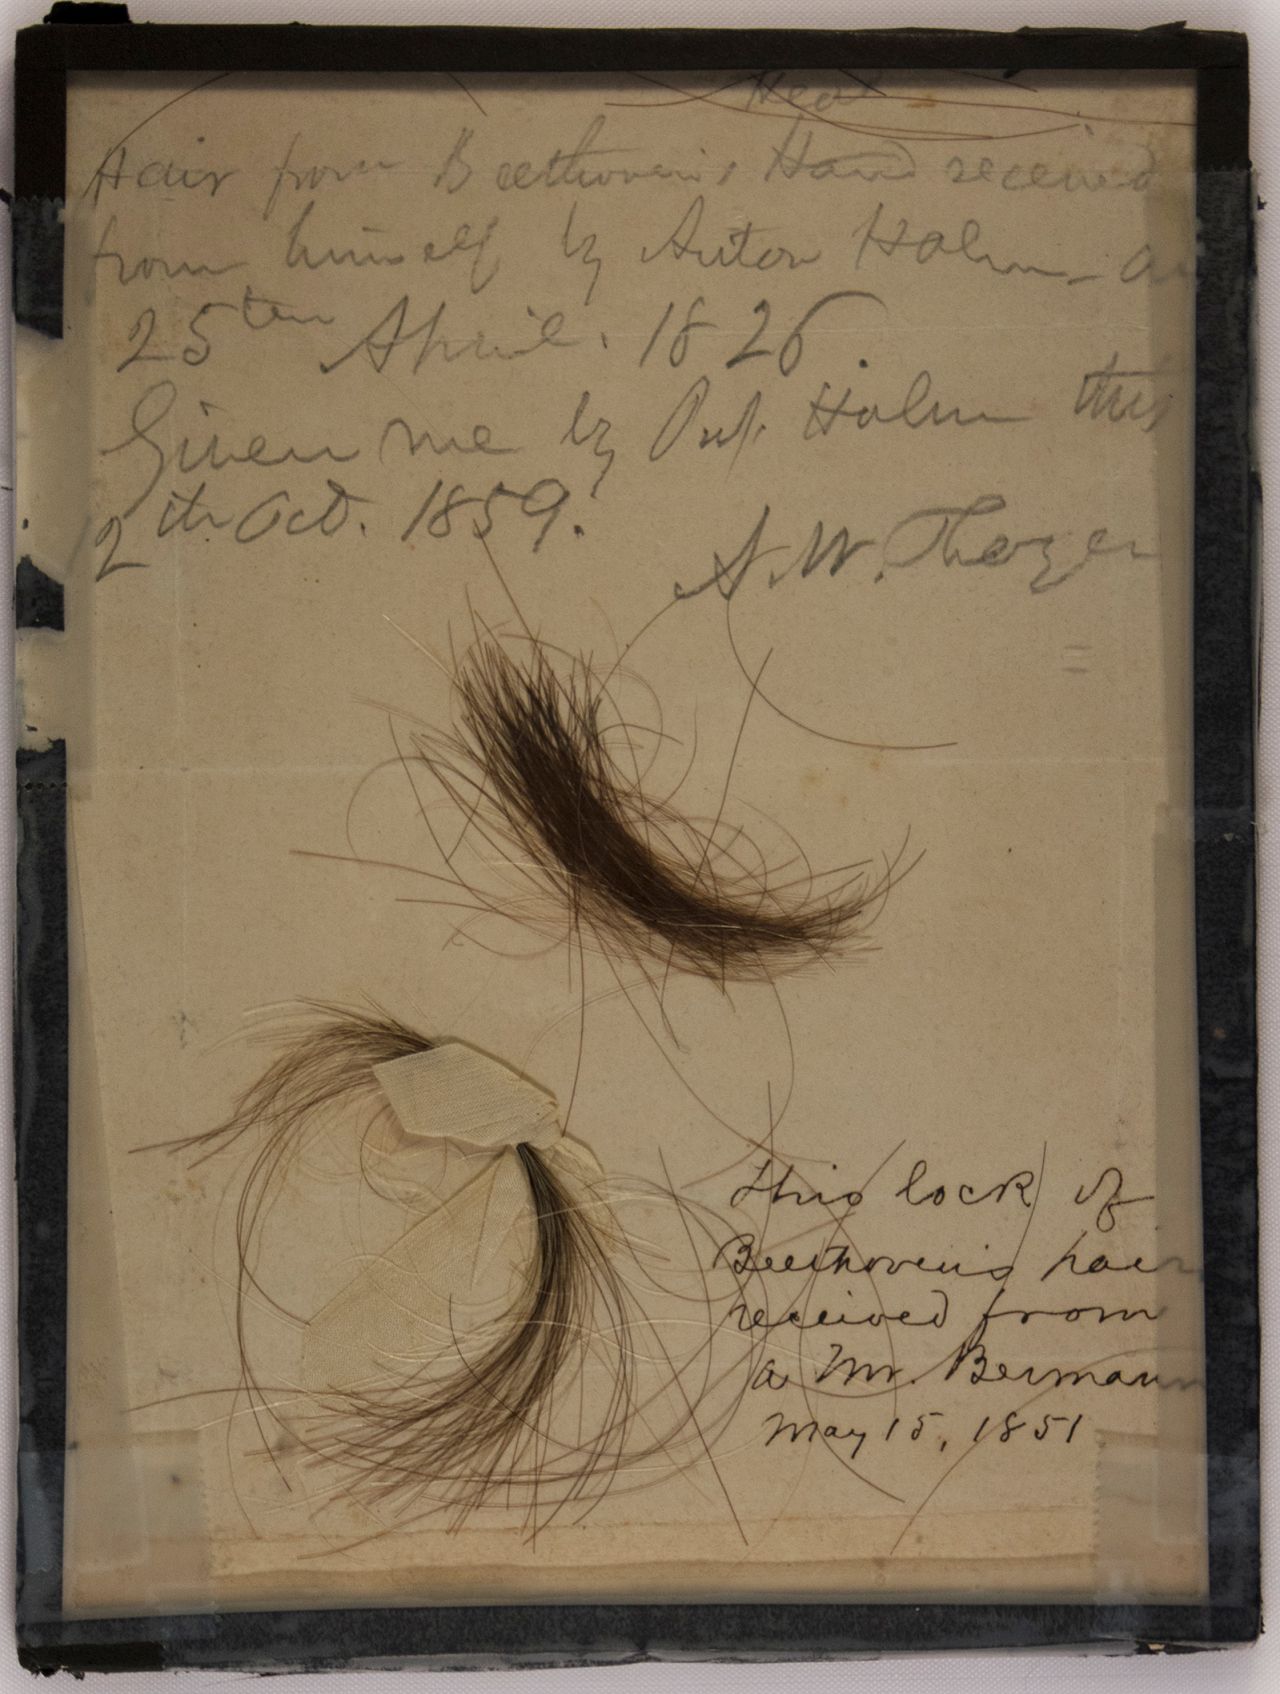 Head
Hair from Beethoven's Hand received
from himself by Anton Halm
25ten April. 1826.
Given me by Prof. Halm this
12th Oct. 1859.
A. W. Thayer
This lock of
Beethoven's hair
received from
a Mr. Bermann
May 15, 1851